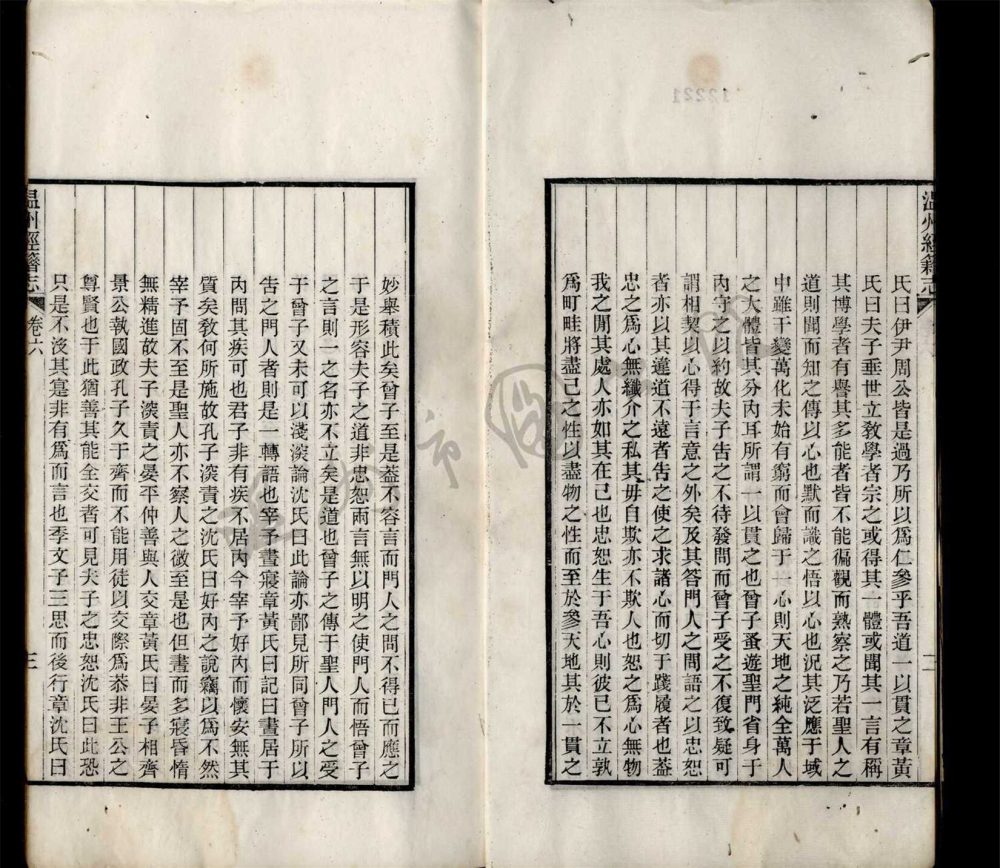 氏曰伊尹周公皆是過乃所以爲仁參乎吾道一以貫之章黃
氏曰夫子垂世立敎學者宗之或得其一體或聞其一言有稱
其博學者有譽其多能者皆不能徧觀而熟察之乃若聖人之
道則聞而知之傳以心也默而識之悟以心也況其泛應于域
中雖千變萬化未始有窮而會歸于一心則天地之純全萬人
之大體皆其分內耳所謂一以貫之也曾子蚤遊聖門省身于
內守之以約故夫子告之不待發問而曾子受之不復致疑可
謂相契以心得于言意之外矣及其答門人之問語之以忠恕
者亦以其違道不遠者告之使之求諸心而切于踐履者也葢
忠之爲心無纖介之私其毋自欺亦不欺人也恕之爲心無物
我之閒其處人亦如其在己也忠恕生于吾心則彼已不立孰
爲町畦將盡己之性以盡物之性而至於參天地其於一貫之
妙舉積此矣曾子至是葢不容言而門人之問不得已而應之
于是形容夫子之道非忠恕兩言無以明之使門人而悟曾子
之言則一之名亦不立矣是道也曾子之傳于聖人門人之受
于曾子又未可以淺深論沈氏曰此論亦鄙見所同曾子所以
告之門人者則是一轉語也宰予晝寢章黃氏曰記曰晝居于
內問其疾可也君子非有疾不居內今宰予好內而懷安無其
質矣敎何所施故孔子深責之沈氏曰好內之說竊以爲不然
宰予固不至是聖人亦不察人之微至是也但晝而多寢昏惰
無精進故夫子深責之晏平仲善與人交章黃氏曰晏子相齊
景公執國政孔子久于齊而不能用徒以交際爲恭非王公之
尊賢也于此猶善其能全交者可見夫子之忠恕沈氏曰此恐
只是不沒其寔非有爲而言也季文子三思而後行章沈氏曰
温州經籍志
卷六
三
温州經籍志
12221